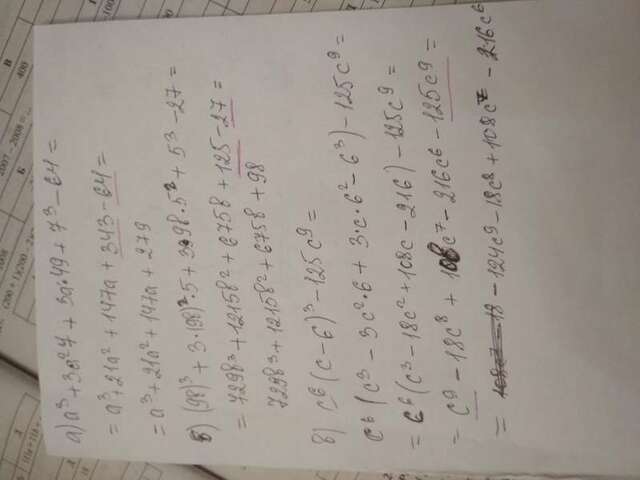 а) a³ + 3a²7 + 3a·49 + 7³ - 64 =
= a³ + 21a² + 147a + 343 - 64 =
= a³ + 21a² + 147a + 279
б) (9в)³ + 3·(9в)²·5 + 3·9в·5² + 5³ - 27 =
= 729в³ + 1215в² + 675в + 125 - 27 =
729в³ + 1215в² + 675в + 98
в) c⁶(c - 6)³ - 125c⁹ =
c⁶(c³ - 3c²·6 + 3·c·6² - 6³) - 125c⁹ =
= c⁶(c³ - 18c² + 108c - 216) - 125c⁹ =
= c⁹ - 18c⁸ + 108c⁷ - 216c⁶ - 125c⁹ =
= - 124c⁹ - 18c⁸ + 108c⁷ - 216c⁶